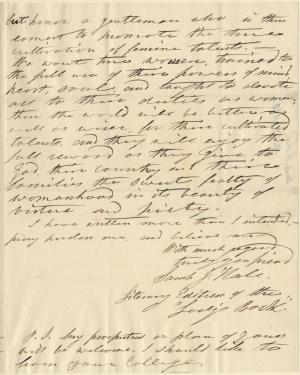 but honor a gentleman who is thus
earnest to promote the true
cultivation of feminine talent.
We want true women, trained to
the full use of their powers of mind
heart, soul; and taught to devote
all to their duties as women,
then the world will be better as
well as wiser, for their cultivated
talents, and they will enjoy the
full reward as they give to
God, their country and their
families the sweet beauty of
womanhood in its beauty of
virtue and piety.
I have written more than I intended
pray pardon me, and believe me
With much regard
truly your friend
Sarah J. Hale.
Literary Editress of the
"Lady's Book."
P.S. Any prospectus or plan of yours
will be welcome. I should like to
learn your College.